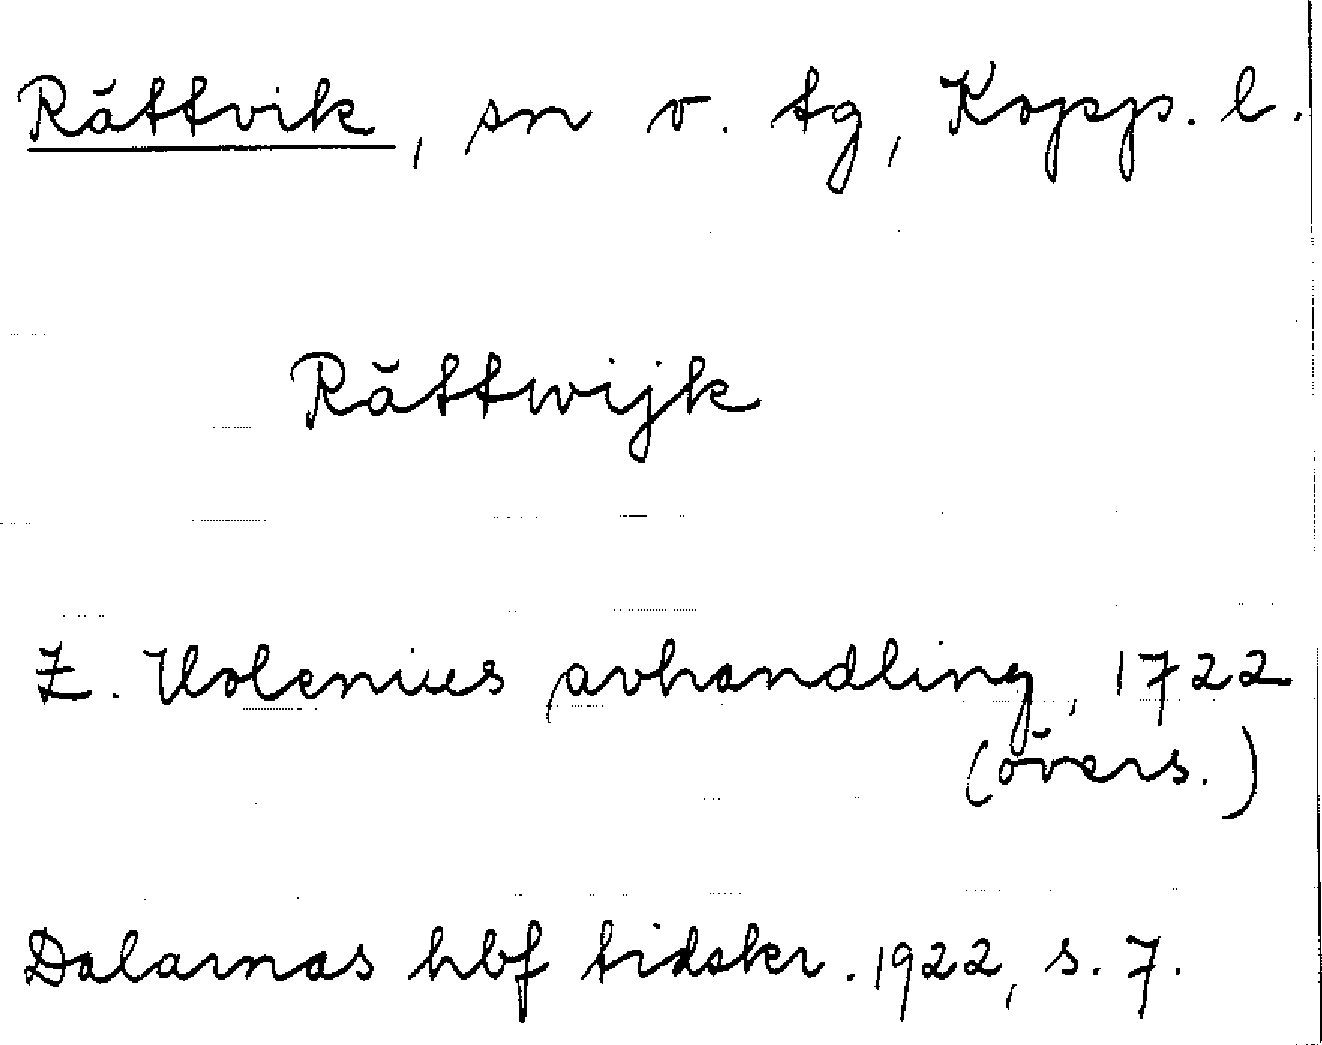 Rättvik, sn o. tg, Kopp. l.
Rättwijk
Z. Holenius avhandling, 1722
(övers.)
Dalarnas hbf tidskr. 1922, s. 7.